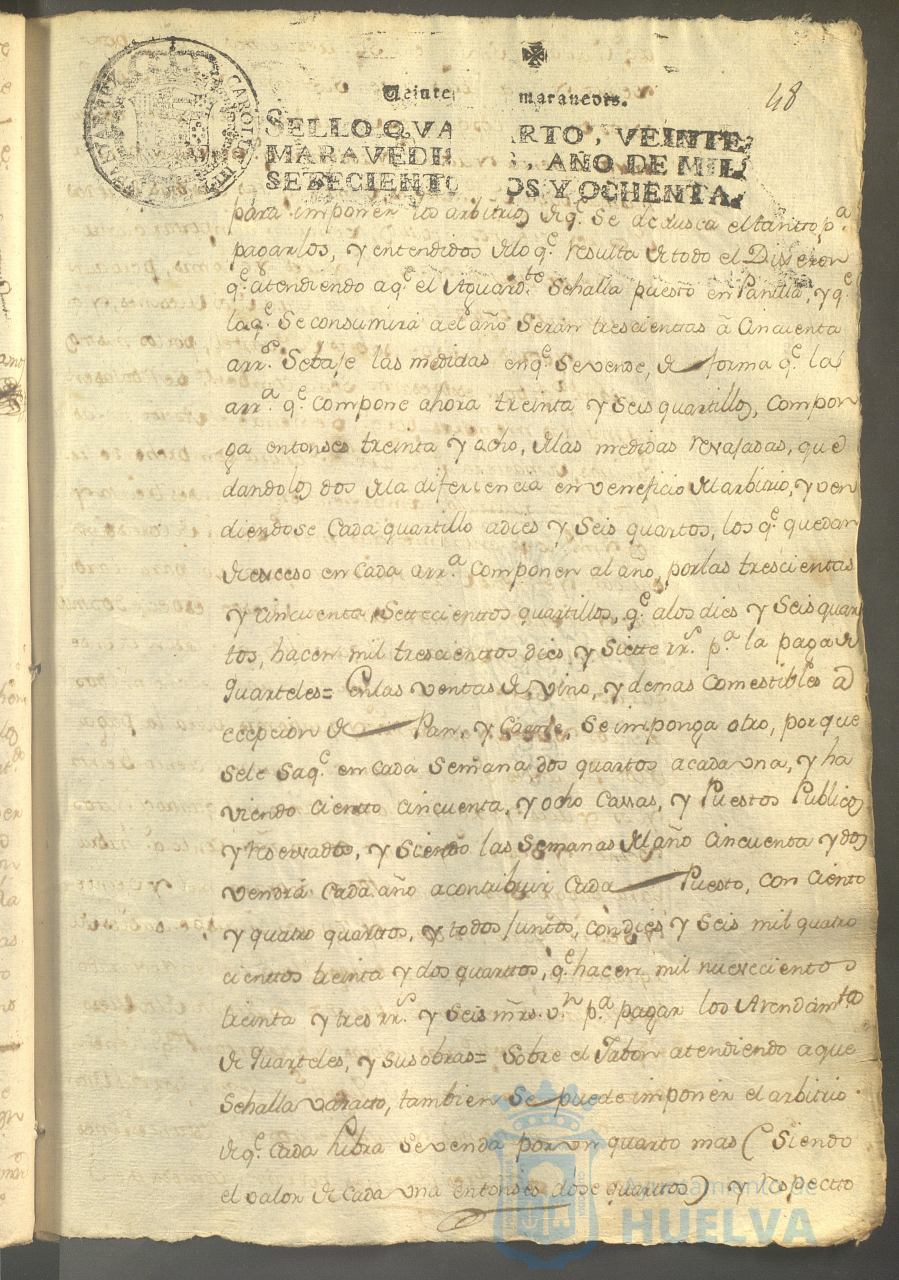 48
Veinte maravedis.
SELLO QVARTO, VEINTE
MARAVEDIS, AÑO DE MIL
SETECIENTOS Y OCHENTA.
CAROLUS III
para imponer los arbitrios de q.e se dedusca el tanto p.a
pagarlos, y entendidos de lo q.e resulta de todo el Dixeron
q.e atendiendo a q.e el Aguard.te se halla puesto en Panilla, y q.e
la q.e Se consumirá a el año Serán trescientas a Cincuenta
arr.s Se baje las medidas en q.e Se vende, de forma q.e la
arr.a q.e compone ahora treinta y Seis quartillos, Compon
ga entonses treinta y ocho, de las medidas revajadas, que
dandolos dos de la diferiencia en veneficio del arbitrio, y ven
diendose Cada quartillo a dies y Seis quartos, los q.e quedan
de exceso en Cada arr.a Componen al año, por las trescientas
y cincuenta, Settecientos quartillos, q.e a los dies y Seis quar
tos, hacen mil trescientos dies, y Siette rr.s p.a la paga de
Quarteles= En las ventas de vino, y demas Comestibles a
ecepcion de Pan, y Carne, Se imponga otro, por que
Se le Saq.e en Cada Semana dos quartos a cada una, y ha
viendo ciento cincuenta, y ocho Cassas, y Puestos Publicos
y reservados, y Siendo las Semanas del año Cincuenta y dos
vendrá Cada año a contribuir Cada Puesto, con ciento
y quatro quarttos, y todos juntos, con dies y Seis mil quatro
cienttos treinta y dos quarttos, q.e hacen mil nuevecientos
treinta y tres rr.s y Seis mrs. v.n p.a pagar los Arendam.tos
de Quarteles, y sus obras= Sobre el Jabon atendiendo a que
Se halla varatto, tambien Se puede imponer el arbitrio
de q.e Cada Libra Se venda por un quarto mas (Siendo
el valor de Cada una entonses dose quarttos) y respecto
Ayuntamiento de
HUELVA